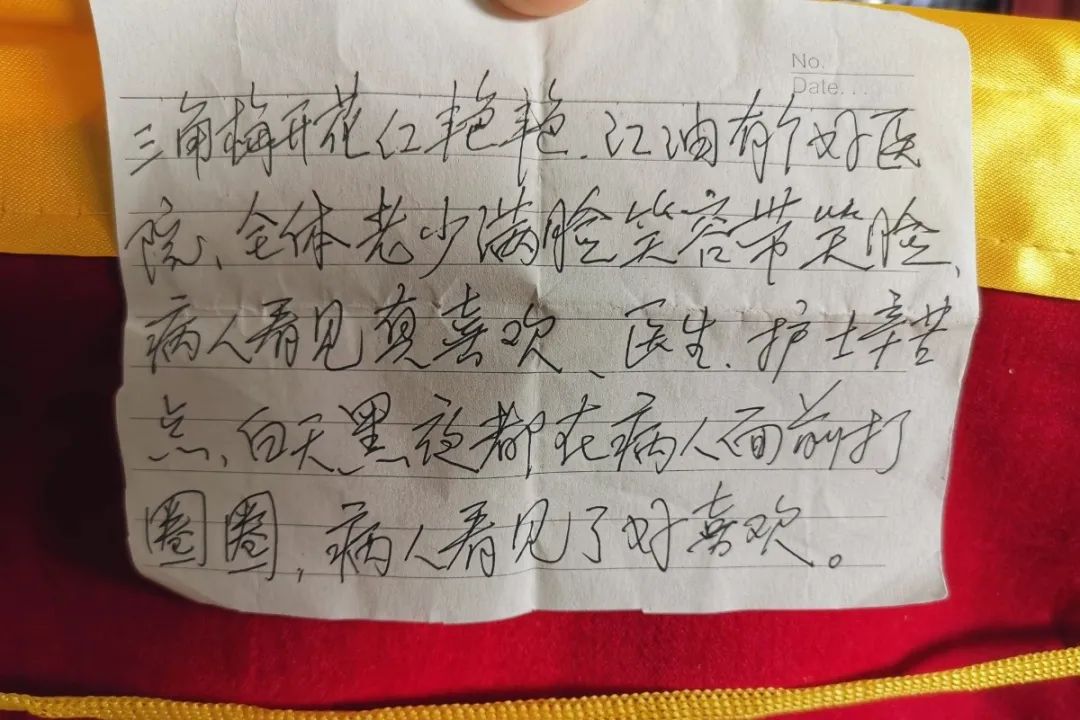 No.
Date...
三角梅开花红艳艳.江油有个好医
院、全体老少满脸笑容带笑脸、
病人看见真喜欢、医生.护士辛苦
点、白天黑夜都在病人面前打
圈圈,病人看见了好喜欢。